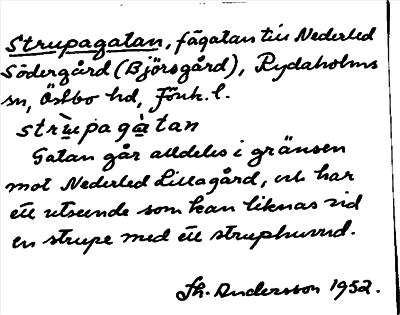 Strupagatan, fägatan till Nederled
Södergård (Björsgård), Rydaholms
sn, Östbo hd, Jönk. l.
strùpagàtan
Gatan går alldeles i gränsen
mot Nederled Lillagård, och har
ett utseende som kan liknas vid
en strupe med ett struphuvud.
Th. Andersson 1952.